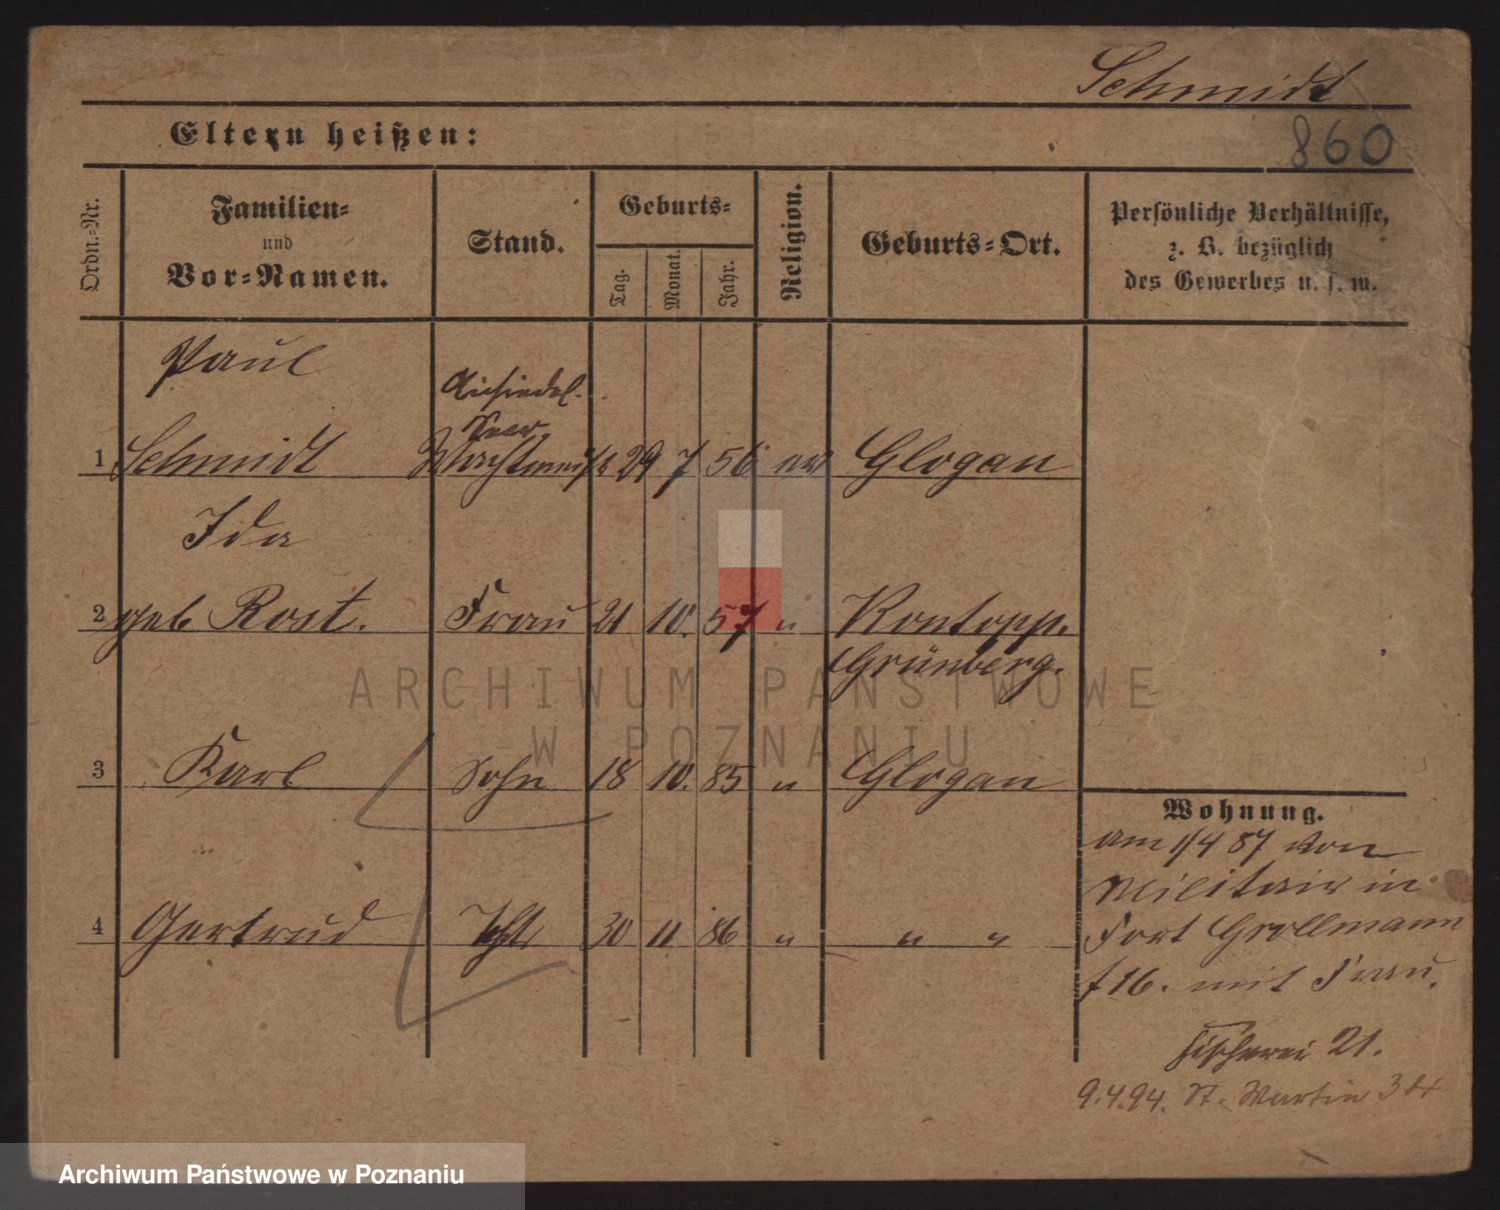 Schmidt
Eltern heißen:
860
Ordn.-Nr.
Familien-
und
Vor-Namen.
Stand.
Geburts-
Tag.
Monat.
Jahr.
Religion.
Geburts-Ort.
Persönliche Verhältnisse,
z. B. bezüglich
des Gewerbes u. s. w.
Paul
1 Schmidt Wachtmeistr 29 7 56 ev Glogau
Ida
2 geb Rost. Frau 21 10. 57 " Kontopp.
Grünberg.
3 Karl Sohn 18 10. 85 " Glogau
4 Gertrud Tcht 30 11 86 " " "
Wohnung.
am 1/4 87 von
Militair in
Fort Grollmann
f 16. mit Frau.
Fischerei 21.
9.4.94. St. Martin
ARCHIWUM PAŃSTWOWE
W POZNANIU
Archiwum Państwowe w Poznaniu